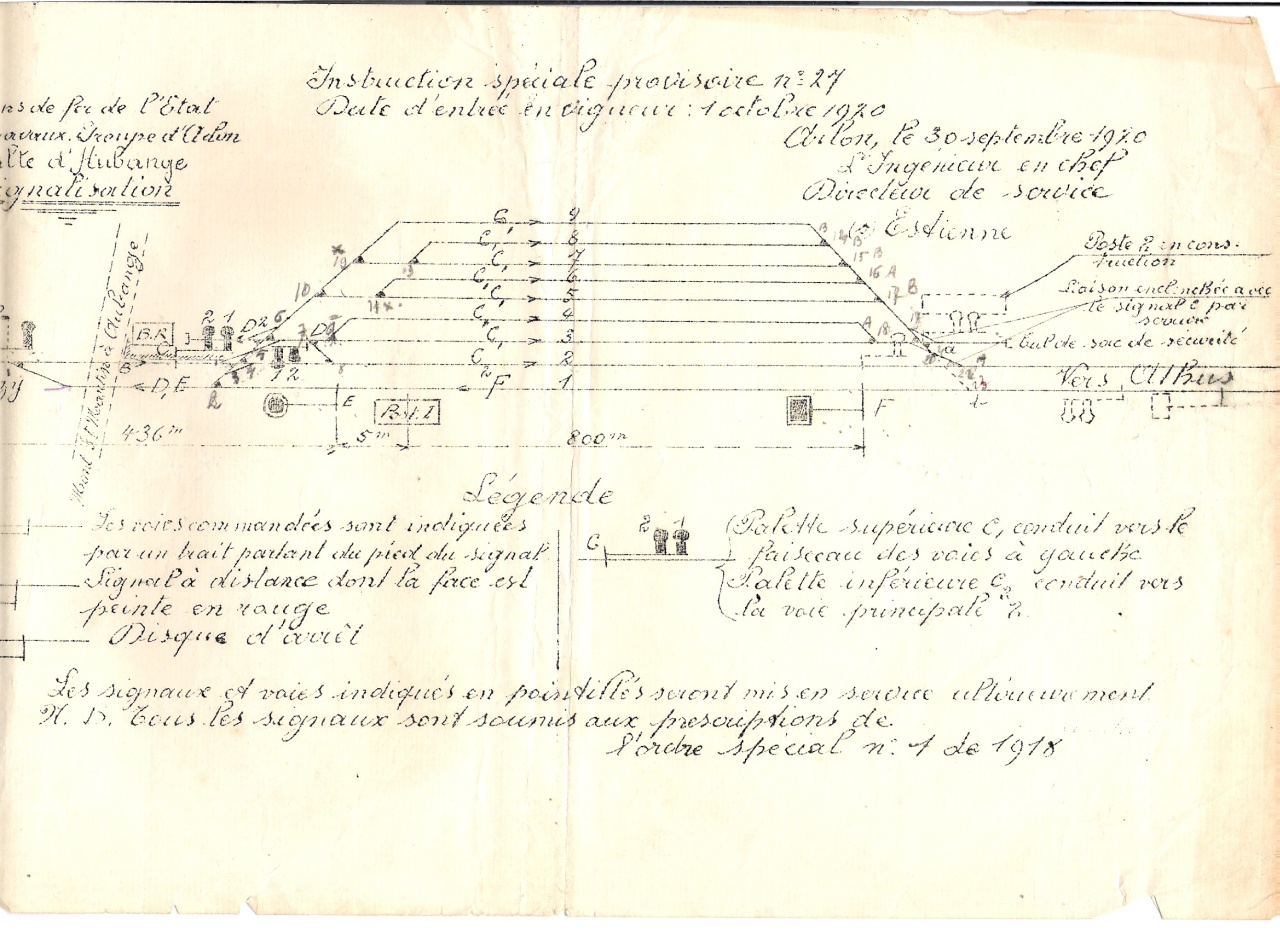 Instruction spéciale provisoire nº 27
Date d'entrée en vigueur : 1 octobre 1920
ns de fer de l'Etat
avaux. Groupe d'Arlon
alte d'Aubange
ignalisation
Arlon, le 30 septembre 1920
L'Ingénieur en chef
Directeur de service
(s) Estienne
Poste 2 en cons-
truction
Liaison enclenchée avec
le signal C par
serrure
Cul de sac de sécurité
Vers Athus
Mont St Martin à Aubange
B.R.
2 1
D2
C, 9
C, 8
C, 7
C, 6
C, 5
C, 4
C, 3
C2 2
D, E F 1
19
10
9
11
B
14 B
15 B
16 A
17 B
A
18
1 2
E
F
436m
5m
800m
Légende
Les voies commandées sont indiquées
par un trait partant du pied du signal
Signal à distance dont la face est
peinte en rouge
Disque d'arrêt
2 1
C
Palette supérieure C, conduit vers le
faisceau des voies à gauche
Palette inférieure C2 conduit vers
la voie principale 2
Les signaux et voies indiqués en pointillés seront mis en service ultérieurement
N. B. Tous les signaux sont soumis aux prescriptions de
l'ordre spécial nº 1 de 1918